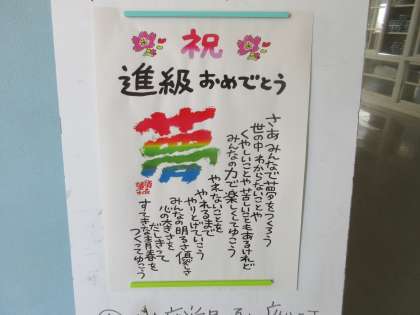 祝
進級おめでとう
夢
さあみんなで夢をつくろう
世の中わからないことや
くやしいことや苦しいこともあるけれど
みんなの力で楽しくしてゆこう
やれないことを
やれるまで
やりとげていこう
みんなの明るさ優しさ
心の大きさを
だしきって
すてきな青春を
つくってゆこう